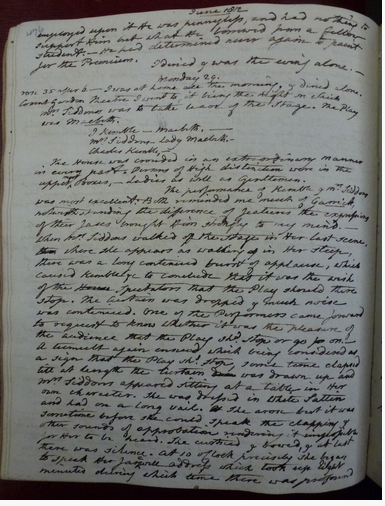 June 1812
employed upon it He was pennyless, and had nothing to
support Him but what He borrowed from a fellow
Student. — He had determined never again to paint
for the Premium.
I dined & was the evng. alone. —
Monday 29.
rose 35 after 6 — I was at home all the morning, & dined alone.
Covent Garden Theatre I went to it being the Night in which
Mrs. Siddons was to take leave of the Stage. The Play
was Macbeth.
J Kemble — Macbeth. —
Mrs. Siddons Lady Macbeth. —
Charles Kemble
The House was crowded in an extraordinary manner
in every part. Persons of High distinction were in the
upper Boxes, — Ladies as well as Gentlemen.
The performance of Kemble & Mrs. Siddons
was most excellent. Both reminded me much of Garrick,
notwithstanding the difference of features the expression
of their faces brought Him strongly to my mind. —
When Mrs. Siddons walked off the Stage in Her last scene,
where She appears as walking in Her Sleep,
there was a long continued burst of applause, which
caused Kemble &c to conclude that it was the wish
of the Spectators that the Play should there
stop. The Curtain was dropped & much noise
was continued. One of the Performers came forward
to request to know whether it was the pleasure of
the audience that the Play shd. Stop or go on. —
A tumult again ensued which being considered as
a sign that the Play shd. Stop, some time elapsed
till at length the Curtain was drawn up and
Mrs. Siddons appeared sitting at a table in Her
own character. She was dressed in White Sattin
and had on a long vail. She arose but it was
sometime before she could speak the clapping &
other sounds of approbation rendering it impossible
for Her to be heard. She curtsied & bowed, & at last
there was silence. At 10 oClock precisely She began
to speak Her farewell address which took up eight
minutes during which time there was profound